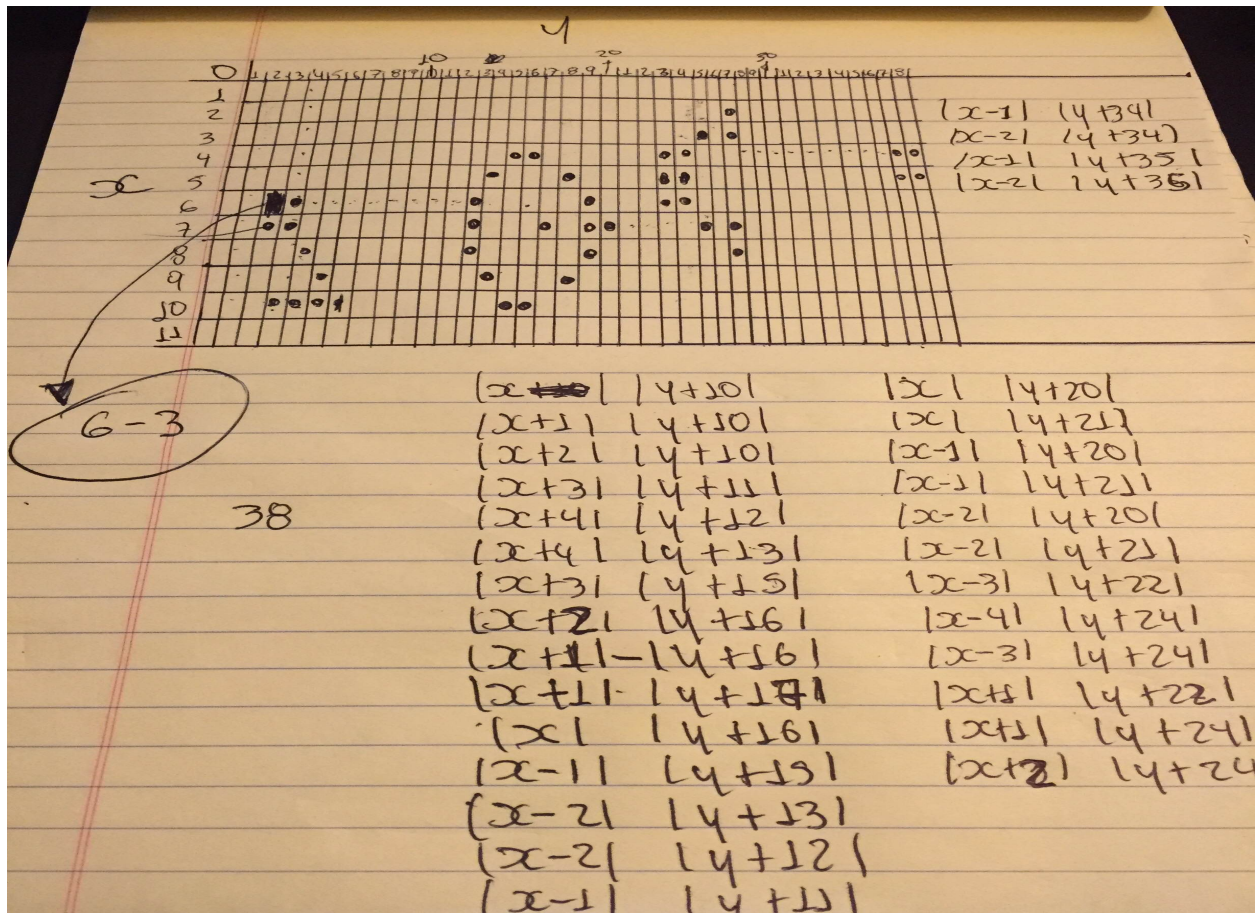 y
10 20 30
0 1 2 3 4 5 6 7 8 9 10 1 2 3 4 5 6 7 8 9 1 1 2 3 4 5 6 7 8 9 1 1 2 3 4 5 6 7 8
1
2 |x-1| |y+34|
3 |x-2| |y+34|
4 |x-1| |y+35|
x 5 |x-2| |y+35|
6
7
8
9
10
11
6-3
38
|x| |y+10|
|x+1| |y+10|
|x+2| |y+10|
|x+3| |y+11|
|x+4| |y+12|
|x+4| |y+13|
|x+3| |y+15|
|x+2| |y+16|
|x+1|-|y+16|
|x+1| |y+17|
|x| |y+16|
|x-1| |y+15|
|x-2| |y+13|
|x-2| |y+12|
|x-1| |y+11|
|x| |y+20|
|x| |y+21|
|x-1| |y+20|
|x-1| |y+21|
|x-2| |y+20|
|x-2| |y+21|
|x-3| |y+22|
|x-4| |y+24|
|x-3| |y+24|
|x+1| |y+22|
|x+1| |y+24|
|x+2| |y+24